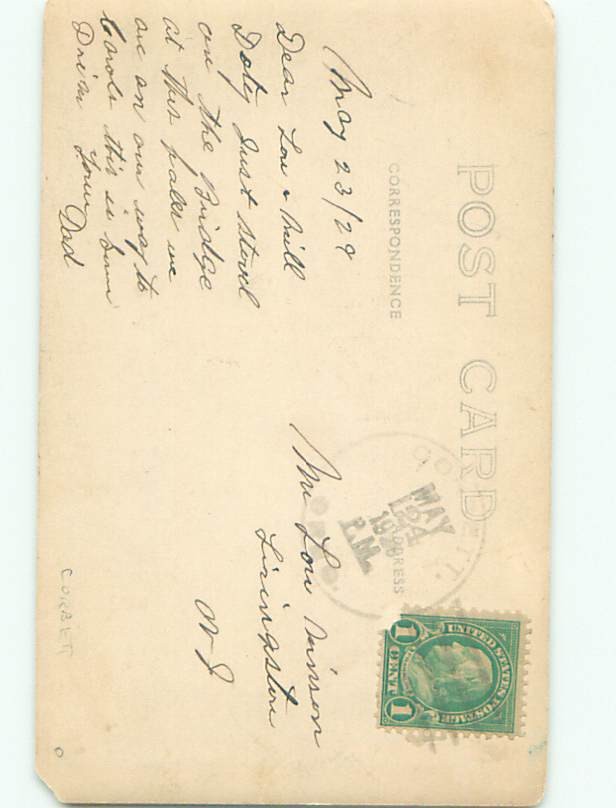 POST CARD
CORRESPONDENCE
ADDRESS
May 23/29
Dear Lou & Will
Doty Just stoped
on the Bridge
at this place we
are on our way to
this is some
Drive Love Dad
Mr Lou
Livingston
N J
MAY
24
P.M.
UNITED STATES POSTAGE
1 CENT 1
CORBETT